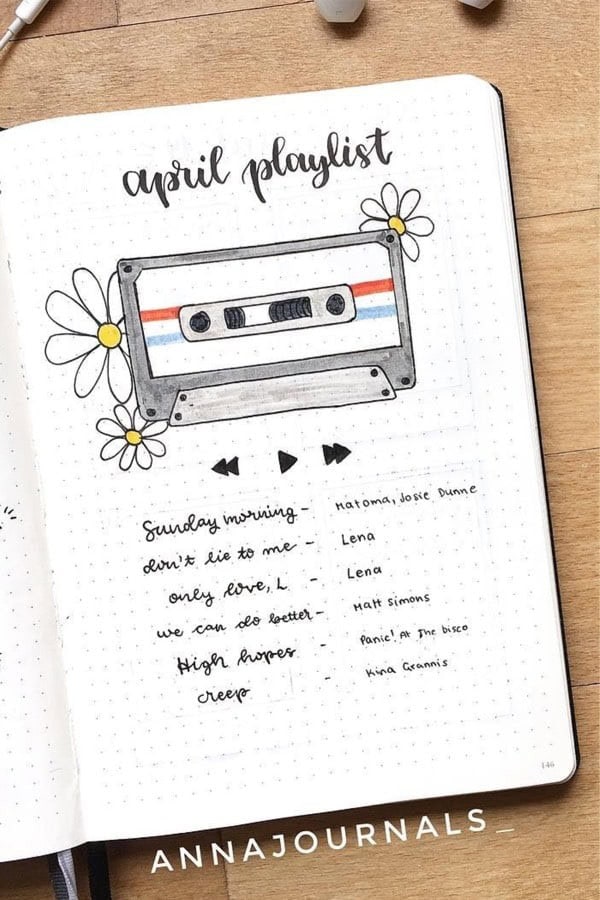 april playlist
Sunday morning - Matoma, Josie Dunne
don't lie to me - Lena
only love, L - Lena
we can do better - Matt Simons
High hopes - Panic! At The Disco
creep - Kina Grannis
146
ANNAJOURNALS_